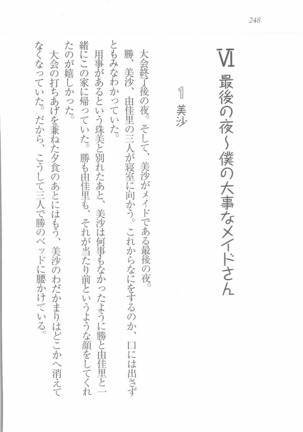 248
Ⅵ 最後の夜～僕の大事なメイドさん
1 美沙
大会終了後の夜。そして、美沙がメイドである最後の夜。
勝、美沙、由佳里の三人が寝室に向かう。これからなにをするのか、口には出さず
ともみなわかっていた。
用事があるという珠美と別れたあと、美沙は何事もなかったように勝と由佳里と一
緒にこの家に帰っていた。勝も由佳里も、それが当たり前というような顔をしてくれ
たのが嬉しかった。
大会の打ちあげを兼ねた夕食のあとにはもう、美沙のわだかまりはどこかへ消えて
なくなっていた。だから、こうして三人で勝のベッドに腰かけている。